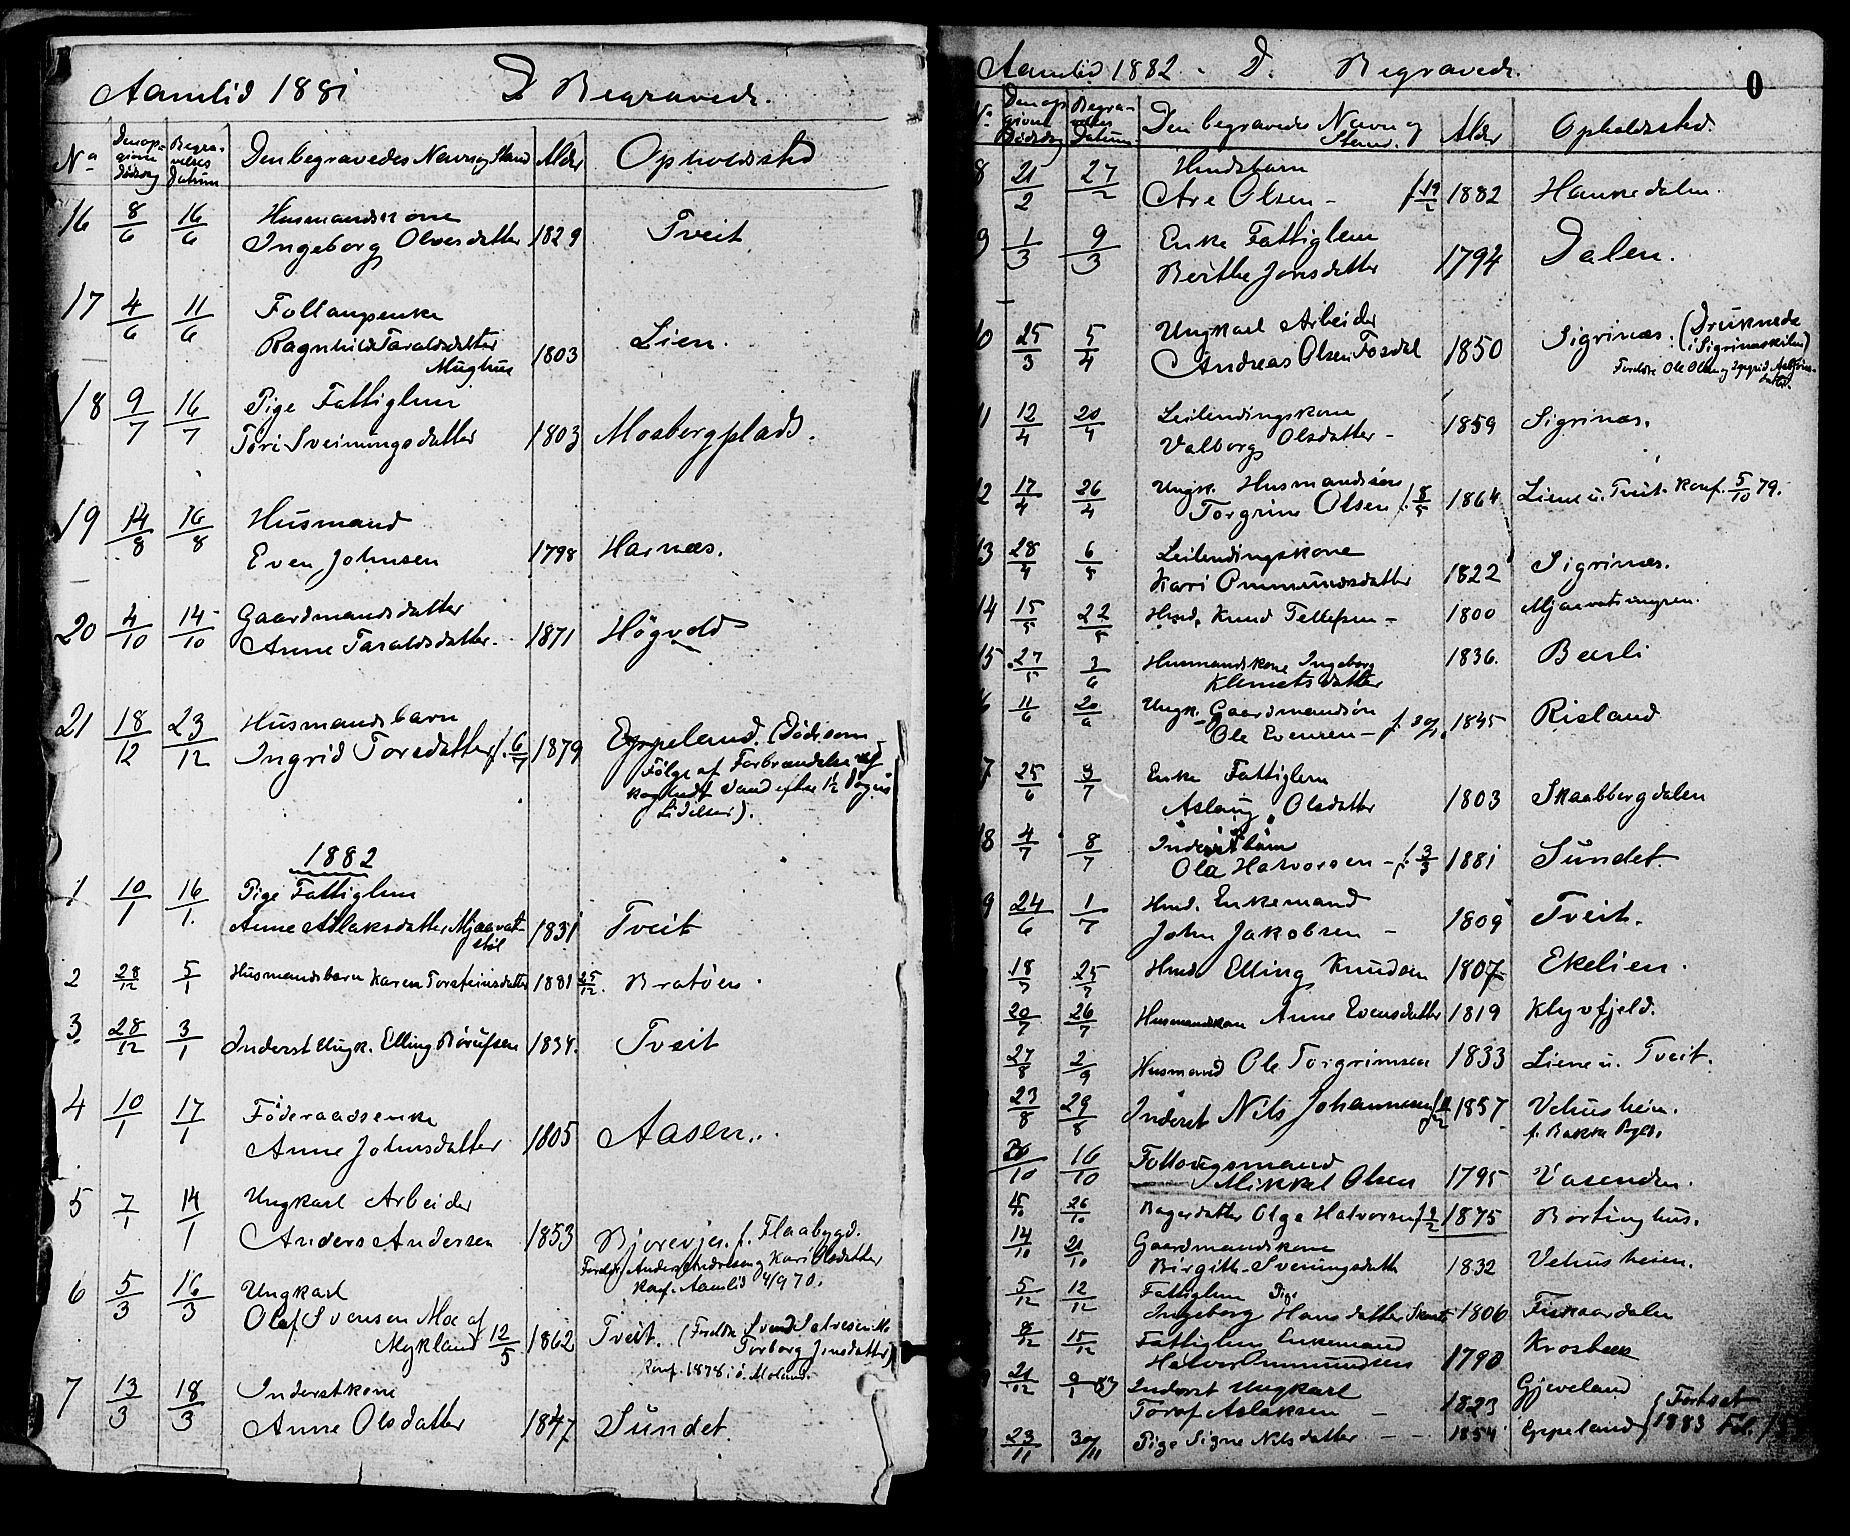 Aamlid 1881 D Begravede.
No Den opgivne Dødsdag Begravelses Datum Den begravedes Navn og Stand Alder Opholdssted
16 8/6 16/6 Husmandskone
Ingeborg Olvesdatter 1829 Tveit
17 4/6 11/6 Follaugsenke
Ragnhild Taraldsdatter 1803 Lien.
18 9/7 16/7 Pige Fattiglem
Tori Sveinungsdatter 1803 Mosbergplads.
19 14/8 16/8 Husmand
Even Johnsen 1798 Harnæs.
20 4/10 14/10 Gaardmandsdatter
Anne Taraldsdatter. 1871 Högvold
21 18/12 23/12 Husmandsbarn
Ingrid Toresdatter f. 6/7 1879 Eppeland. (Død som
Følge af Forbrændelse af
koghedt Vand efter 1½ Døgns
Lidelser).
1882
1 10/1 16/1. Pige Fattiglem
Anne Aslaksdatter Mjaavat-
støl 1831 Tveit
2 28/12 5/1 Husmandsbarn Karen Torsteinsdatter 1881 25/12. Bratöen.
3. 28/12 3/1 Inderst Ungk. Elling Börufsen 1834. Tveit
4 10/1 17/1 Föderaadsenke
Anne Johnsdatter 1805 Aasen.
5 7/1 14/1 Ungkarl Arbeider
Anders Andersen 1853 f. Flaabygd.
Foreldre Anders Andersen og Kari Olsdatter
Konf. Aamlid 4/9 70.
6 5/3 16/3 Ungkarl
Olaf Svensen Moe af
Mykland 12/5 1862 Tveit. (Foreldre Svend
Torborg Jonsdatter)
Konf. 1878 i ö. Moland.
7 13/3 18/3 Inderstkone
Anne Olsdatter 1847 Sundet.
Aamlid 1882. D. Begravede. 0
No Den opgivne Dødsdag Begravelses Datum Den begravedes Navn og Stand. Alder Opholdssted.
8 21/2 27/2 Hmdsbarn
Are Olsen - f. 19/2 1882 Hankedalen.
9 1/3 9/3 Enke Fattiglem
Berthe Jonsdatter 1794 Dalen.
10 25/3 5/4 Ungkarl Arbeider
Andreas Olsen Fosdal 1850 Sigrinæs. (Druknede
i Sigrinæskilen)
Foreldre Ole Olsen og
11 12/4 20/4 Leilendingskone
Valborg Olsdatter - 1859 Sigrinæs.
12 17/4 26/4 Ungk. Husmandssön
Torgrim Olsen f. 8/5 1864 Liene u. Tveit. Konf. 5/10 79.
13 28/4 6/5 Leilendingskone
Kari Ommundsdatter 1822 Sigrinæs.
14 15/5 22/5 Hmd. Knud Tellefsen - 1800 Mjaavatsmyren.
15 27/5 3/6 Husmandskone Ingeborg
Klemetsdatter 1836. Baasli
6 11/6 20/6 Ungk. Gaardmandsön
Ole Evensen - 1845 Risland
7 25/6 3/7 Enke Fattiglem
Aslaug Olsdatter 1803 Skaabbergdalen
18 4/7 8/7 Inderstbarn
Ola Halvorsen - f. 3/3 1881 Sundet
9 24/6 1/7 Hmd. Enkemand
John Jakobsen - 1809 Tveit.
18/7 25/7 Hmd. Elling Knudsen 1807 Ekelien.
20/7 26/7 Husmandskone Anne Evensdatter 1819 Klyvfjeld.
27/8 2/9 Husmand Ole Torgrimsen 1833 Liene u. Tveit.
23/8 29/8 Inderst Nils Johannesen 1857 Vehusheien.
f. Bakka
10 16/10 Follaugsmand
Mikkel Olsen 1795 Vasenden.
15/10 26/10 Olga Halvorsen f. 9/2 1875 Börtinghus.
14/10 21/10 Gaardmandskone
Birgith Sveinungsdatter 1832 Vehusheien.
5/12 12/12 Fattiglem Pige
Ingeborg Hansdatter 1806 Fiskaardalen
8/12 15/12 Fattiglem Enkemand
Halvor Ommundsen 1790 Krosbæk
21/12 2/1 83 Inderst Ungkarl
Torof Aslaksen - 1823 Gjeveland
23/11 30/11 Pige Signe Nilsdatter - - 1854 Eppeland (Fortsat
1883 Fol.